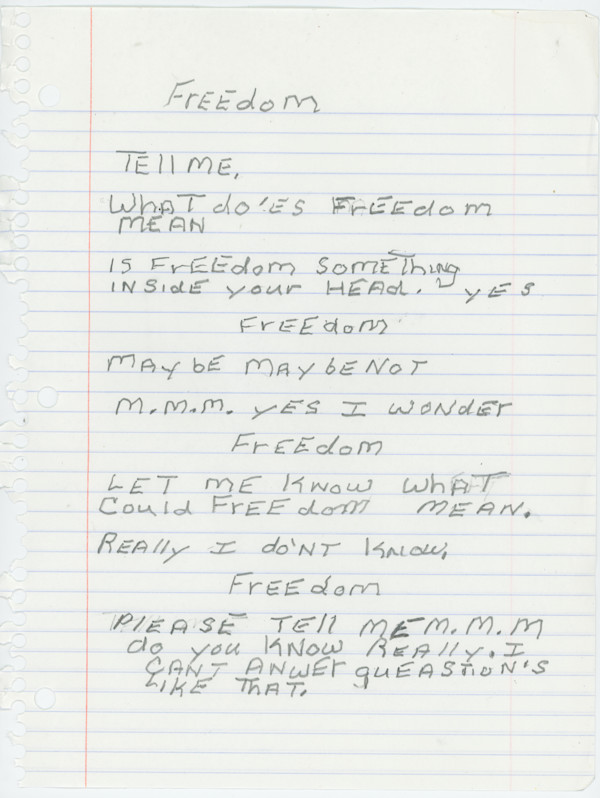 FrEEdom
TEll ME,
WhAT do'ES FrEEdom
MEAN
IS FrEEdom SOMEThing
INSIdE your HEAd. yES
FrEEdom
MAybE MAybE NOT
M.M.M. yES I WONdEr
FrEEdom
LET ME KNOW WhAT
Could FrEEdom MEAN.
REAlly I do'NT KNOW.
FrEEdom
PlEASE TEll ME M.M.M
do you KNOW REAlly. I
CANT ANWEr quEASTION'S
LIKE ThAT.